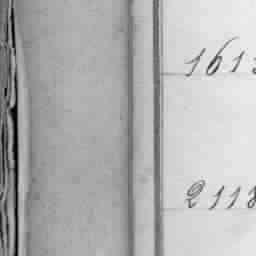 161
2118